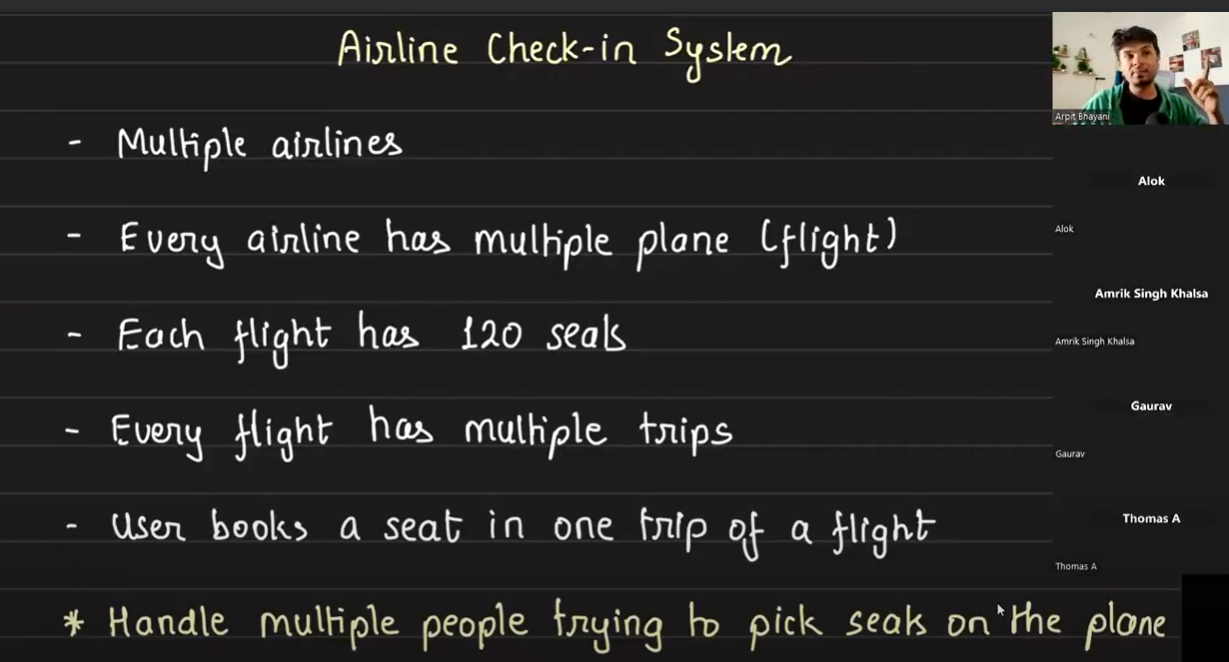 Airline Check-in System
- Multiple airlines
- Every airline has multiple plane (flight)
- Each flight has 120 seats
- Every flight has multiple trips
- User books a seat in one trip of a flight
* Handle multiple people trying to pick seats on the plane
Arpit Bhayani
Alok
Alok
Amrik Singh Khalsa
Amrik Singh Khalsa
Gaurav
Gaurav
Thomas A
Thomas A